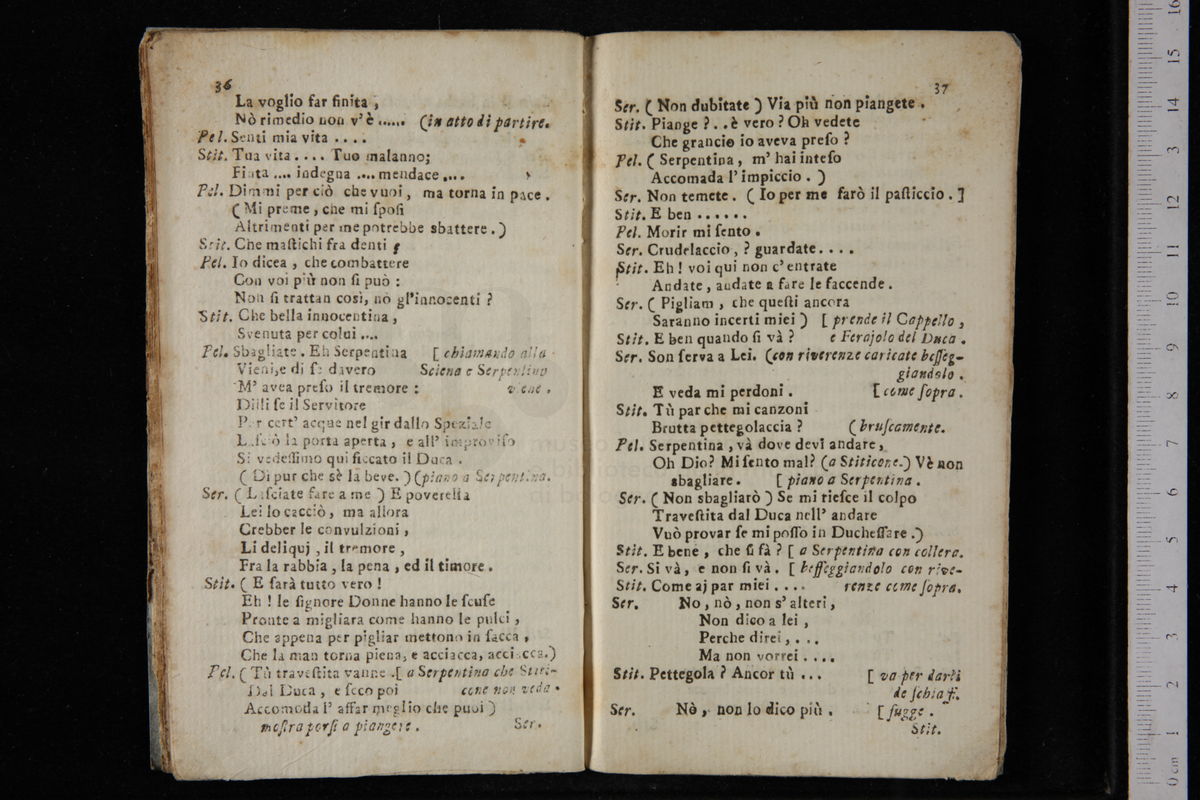 36
La voglio far finita ,
Nò rimedio non v'è ...... (in atto di partire.
Pel. Senti mia vita . . . .
Stit. Tua vita . . . . Tuo malanno;
Finta .... indegna .... mendace ....
Pel. Dimmi per ciò che vuoi, ma torna in pace .
( Mi preme , che mi ſpoſi
Altrimenti per me potrebbe sbattere . )
Stit. Che maſtichi fra denti ?
Pel. Io dicea , che combattere
Con voi più non ſi può :
Non ſi trattan così, nò gl'innocenti ?
Stit. Che bella innocentina ,
Svenuta per colui ....
Pel. Sbagliate . Eh Serpentina [ chiamando alla
Vieni, e di ſe davero Sciena e Serpentino
M' avea preſo il tremore : viene .
Dilli ſe il Servitore
Per cert' acque nel gir dallo Speziale
Laſciò la porta aperta , e all' improviſo
Si vedeſſimo qui ficcato il Duca .
( Di pur che sè la beve. ) (piano a Serpentina.
Ser. ( Laſciate fare a me ) E poverella
Lei lo cacciò, ma allora
Crebber le convulzioni ,
Li deliquj , il tremore ,
Fra la rabbia , la pena , ed il timore .
Stit. ( E ſarà tutto vero !
Eh ! le ſignore Donne hanno le ſcuſe
Pronte a migliara come hanno le pulci ,
Che appena per pigliar mettono in ſacca ,
Che la man torna piena, e acciacca, acciacca.)
Pel. ( Tù traveſtita vanne .[ a Serpentina che Stiti-
Dal Duca , e ſeco poi cone non veda .
Accomoda l' affar meglio che puoi )
moſtra porſi a piangere . Ser.
37
Ser. ( Non dubitate ) Via più non piangete .
Stit. Piange ? . . è vero ? Oh vedete
Che grancio io aveva preſo ?
Pel. ( Serpentina , m' hai inteſo
Accomada l' impiccio . )
Ser. Non temete . ( Io per me farò il paſticcio . ]
Stit. E ben . . . . . .
Pel. Morir mi ſento .
Ser. Crudelaccio , ? guardate . . . .
Stit. Eh ! voi qui non c' entrate
Andate , audate a fare le faccende .
Ser. ( Pigliam , che queſti ancora
Saranno incerti miei ) [ prende il Cappello ,
Stit. E ben quando ſi và ? e Ferajolo del Duca .
Ser. Son ſerva a Lei. (con riverenze caricate beffeg-
giandolo .
E veda mi perdoni . [ come ſopra .
Stit. Tù par che mi canzoni
Brutta pettegolaccia ? ( bruſcamente.
Pel. Serpentina , và dove devi andare,
Oh Dio? Mi ſento mal? (a Stiticone.) Vè non
sbagliare . [ piano a Serpentina .
Ser. ( Non sbagliarò ) Se mi rieſce il colpo
Traveſtita dal Duca nell' andare
Vuò provar ſe mi poſſo in Ducheſſare .)
Stit. E bene , che ſi fà ? [ a Serpentina con collera.
Ser. Si và, e non ſi và. [ beffeggiandolo con rive-
Stit. Come aj par miei . . . . renze come ſopra.
Ser. No , nò , non s' alteri ,
Non dico a lei ,
Perche direi , . . .
Ma non vorrei . . . .
Stit. Pettegola ? Ancor tù . . . [ va per darli
de ſchiaffi.
Ser. Nò , non lo dico più . [ fugge .
Stit.